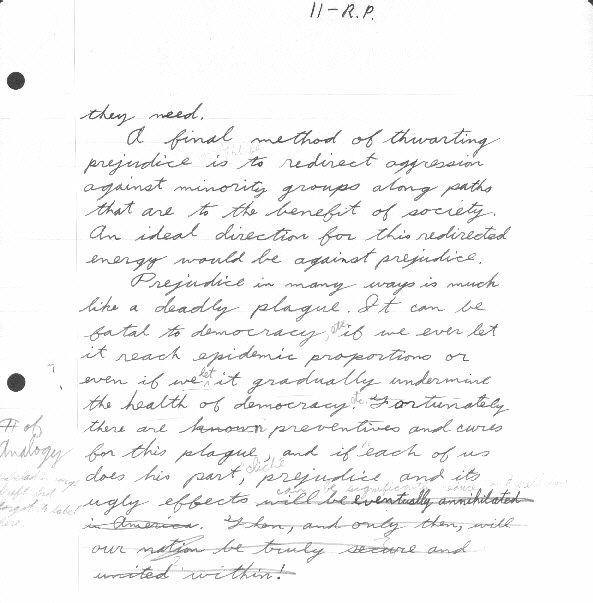 11-R.P.
they need.
A final method of thwarting
prejudice is to redirect aggression
against minority groups along paths
that are to the benefit of society.
An ideal direction for this redirected
energy would be against prejudice.
Prejudice in many ways is much
like a deadly plague. It can be
fatal to democracy, if we ever let
it reach epidemic proportions or
even if we let it gradually undermine
the health of democracy. Fortunately
there are known preventives and cures
# of
Analogy
for this plague, and if each of us
cliché
does his part, prejudice and its
ugly effects will be eventually annihilated
in America. Then, and only then, will
our nation be truly secure and
united within!